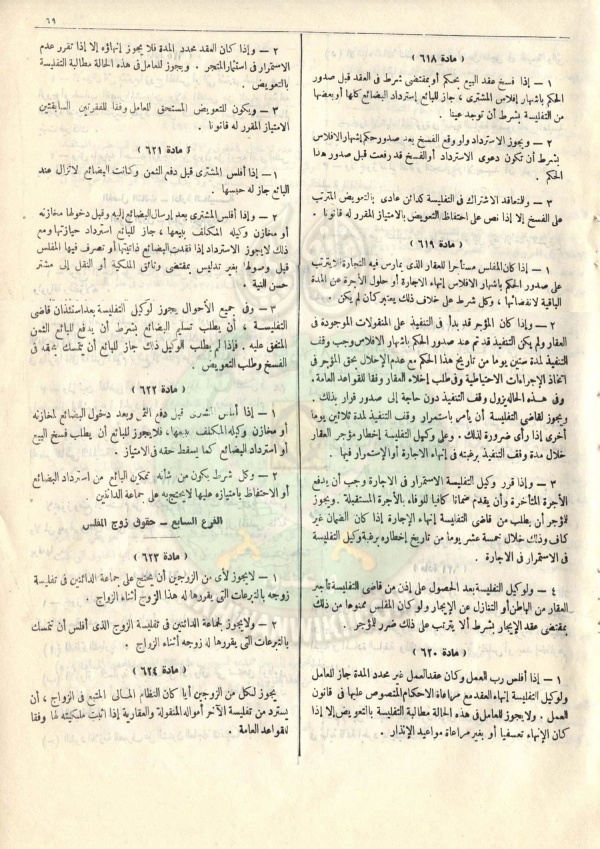 ٦٩
( مادة ٦١٨ )
١ – إذا فسخ عقد البيع بحكم أو بمقتضى شرط فى العقد قبل صدور
الحكم باشهار إفلاس المشترى ، جاز للبائع إسترداد البضائع كلها أو بعضها
من التفليسة بشرط أن توجد عينا .
٢ – ويجوز الاسترداد ولو وقع الفسخ بعد صدور حكم إشهار الافلاس
بشرط أن تكون دعوى الاسترداد أو الفسخ قد رفعت قبل صدور هذا
الحكم .
٣ – وللمتعاقد الاشتراك فى التفليسة كدائن عادى بالتعويض المترتب
على الفسخ إلا إذا نص على احتفاظ التعويض بالامتياز المقرر له قانونا .
( مادة ٦١٩ )
١ – إذا كان المفلس مستأجرا للعقار الذى يمارس فيه التجارة لا يترتب
على صدور الحكم باشهار الافلاس إنهاء الاجارة أو حلول الأجرة عن المدة
الباقية لانقضائها ، وكل شرط على خلاف ذلك يعتبر كأن لم يكن .
٢ – وإذا كان المؤجر قد بدأ فى التنفيذ على المنقولات الموجودة فى
العقار ولم يكن التنفيذ قد تم عند صدور الحكم باشهار الافلاس وجب وقف
التنفيذ لمدة ستين يوما من تاريخ هذا الحكم مع عدم الإخلال بحق المؤجر فى
اتخاذ الإجراءات الاحتياطية وفى طلب إخلاء العقار وفقا للقواعد العامة .
وفى هذه الحالة يزول وقف التنفيذ دون حاجة إلى صدور قرار بذلك .
ويجوز لقاضى التفليسة أن يأمر باستمرار وقف التنفيذ لمدة ثلاثين يوما
أخرى إذا رأى ضرورة لذلك . وعلى وكيل التفليسة إخطار مؤجر العقار
خلال مدة وقف التنفيذ برغبته فى إنهاء الاجارة أو الاستمرار فيها .
٣ – وإذا قرر وكيل التفليسة الاستمرار فى الاجارة وجب أن يدفع
الأجرة المتأخرة وأن يقدم ضمانا كافيا للوفاء بالأجرة المستقبلة . ويجوز
للمؤجر أن يطلب من قاضى التفليسة إنهاء الإجارة إذا كان الضمان غير
كاف وذلك خلال خمسة عشر يوما من تاريخ إخطاره برغبة وكيل التفليسة
فى الاستمرار فى الاجارة .
٤ – ولوكيل التفليسة بعد الحصول على إذن من قاضى التفليسة تأجير
العقار من الباطن أو التنازل عن الإيجار ولو كان المفلس ممنوعا من ذلك
بمقتضى عقد الإيجار بشرط ألا يترتب على ذلك ضرر للمؤجر .
( مادة ٦٢٠ )
١ – إذا أفلس رب العمل وكان عقد العمل غير محدد المدة جاز للعامل
ولوكيل التفليسة إنهاء العقد مع مراعاة الاحكام المنصوص عليها فى قانون
العمل . ولا يجوز للعامل فى هذه الحالة مطالبة التفليسة بالتعويض إلا إذا
كان الإنهاء تعسفيا أو بغير مراعاة مواعيد الإنذار .
٢ – وإذا كان العقد محدد المدة فلا يجوز إنهاؤه إلا إذا تقرر عدم
الاستمرار فى استثمار المتجر . ويجوز للعامل فى هذه الحالة مطالبة التفليسة
بالتعويض .
٣ – ويكون للتعويض المستحق للعامل وفقا للفقرتين السابقتين
الامتياز المقرر له قانونا .
( مادة ٦٢١ )
١ – إذا أفلس المشترى قبل دفع الثمن وكانت البضائع لاتزال عند
البائع جاز له حبسها .
٢ – وإذا أفلس المشترى بعد إرسال البضائع إليه وقبل دخولها مخازنه
أو مخازن وكيله المكلف ببيعها ، جاز للبائع استرداد حيازتها ومع
ذلك لا يجوز الاسترداد إذا فقدت البضائع ذاتيتها أو تصرف فيها المفلس
قبل وصولها بغير تدليس بمقتضى وثائق الملكية أو النقل إلى مشتر
حسن النية .
٣ – وفى جميع الأحوال يجوز لوكيل التفليسة بعد استئذان قاضى
التفليسة ، أن يطلب تسليم البضائع بشرط أن يدفع للبائع الثمن
المتفق عليه . فإذا لم يطلب الوكيل ذلك جاز للبائع أن يتمسك بحقه فى
الفسخ وطلب التعويض .
( مادة ٦٢٢ )
١ – إذا أفلس المشترى قبل دفع الثمن وبعد دخول البضائع لمخازنه
أو مخازن وكيله المكلف ببيعها ، فلا يجوز للبائع أن يطلب فسخ البيع
أو استرداد البضائع كما يسقط حقه فى الامتياز .
٢ – وكل شرط يكون من شأنه تمكين البائع من استرداد البضائع
أو الاحتفاظ بامتيازه عليها لا يحتج به على جماعة الدائنين .
الفرع السابع – حقوق زوج المفلس
( مادة ٦٢٣ )
١ – لا يجوز لأى من الزوجين أن يحتج على جماعة الدائنين فى تفليسة
زوجه بالتبرعات التى يقررها له هذا الزوج أثناء الزواج .
٢ – ولا يجوز لجماعة الدائنين فى تفليسة الزوج الذى أفلس أن تتمسك
بالتبرعات التى يقررها له زوجه أثناء الزواج .
( مادة ٦٢٤ )
يجوز لكل من الزوجين أيا كان النظام المالى المتبع فى الزواج ، أن
يسترد من تفليسة الآخر أمواله المنقولة والعقارية إذا اثبت ملكيته لها وفقا
للقواعد العامة .